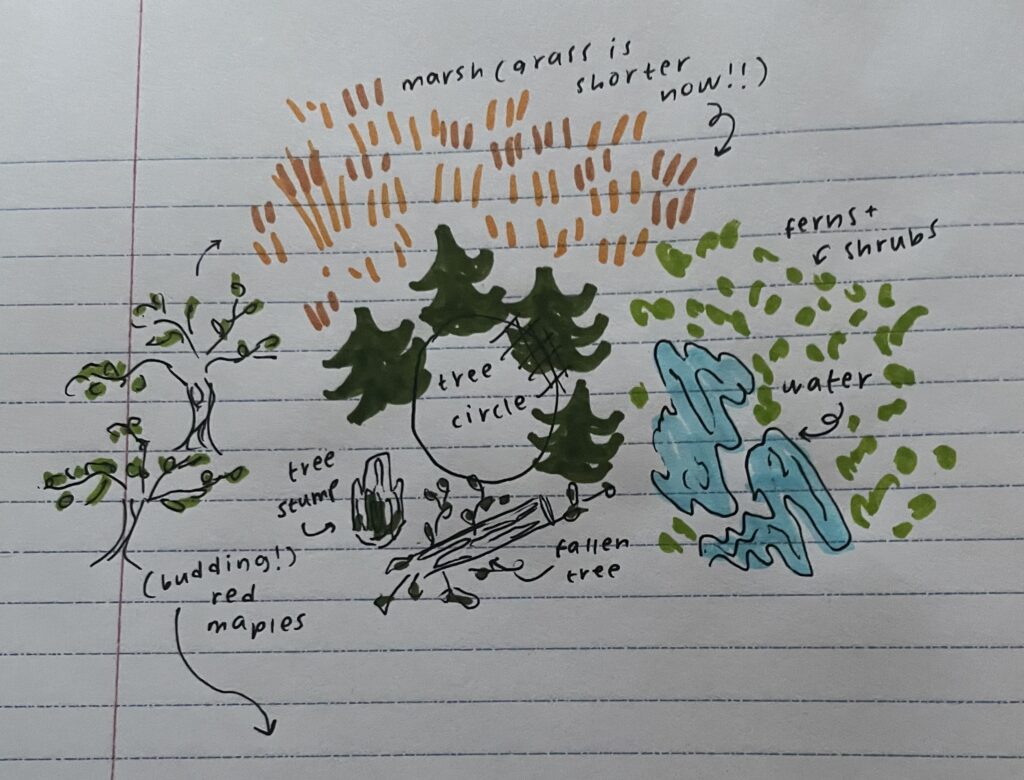 marsh (grass is
shorter
now!!)
ferns +
shrubs
water
tree
circle
tree
stump
fallen
tree
(budding!)
red
maples